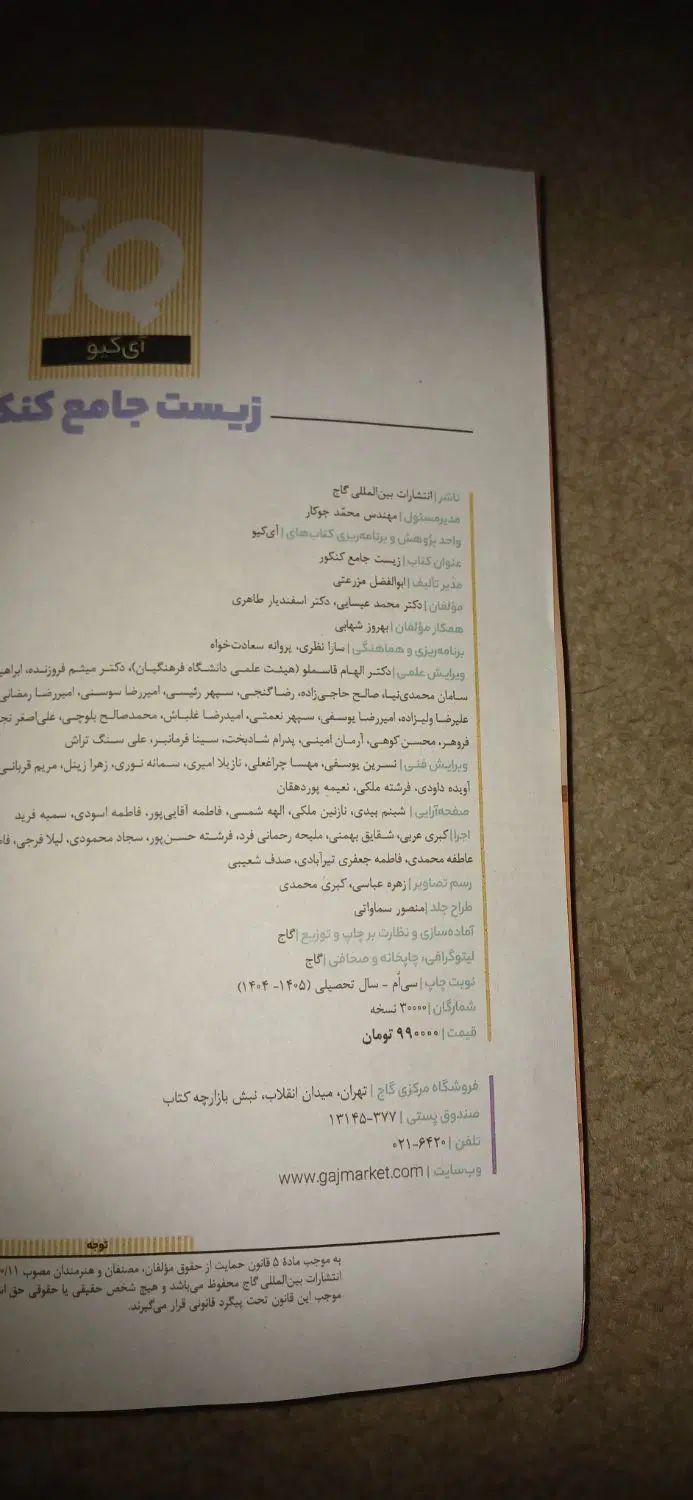 iQ
آی‌کیو
زیست جامع
ناشر | انتشارات بین‌المللی گاج
مدیرمسئول | مهندس محمّد جوکار
واحد پژوهش و برنامه‌ریزی کتاب‌های | آی‌کیو
عنوان کتاب | زیست جامع کنکور
مدیر تألیف | ابوالفضل مزرعتی
مؤلفان | دکتر محمد عیسایی، دکتر اسفندیار طاهری
همکار مؤلفان | بهروز شهابی
برنامه‌ریزی و هماهنگی | سارا نظری، پروانه سعادت‌خواه
ویرایش علمی | دکتر الهام قاسملو (هیئت علمی دانشگاه فرهنگیان)، دکتر میثم فروزنده،
سامان محمدی‌نیا، صالح حاجی‌زاده، رضا گنجی، سپهر رئیسی، امیررضا سوسنی، امیررضا رمضانی
علیرضا ولیزاده، امیررضا یوسفی، سپهر نعمتی، امیدرضا غلباش، محمدصالح بلوچی، علی‌اصغر
فروهر، محسن کوهی، آرمان امینی، پدرام شادبخت، سینا فرمانبر، علی سنگ تراش
ویرایش فنی | نسرین یوسفی، مهسا چراغعلی، نازیلا امیری، سمانه نوری، زهرا زینل، مریم قربانی
آویده داودی، فرشته ملکی، نعیمه پوردهقان
صفحه‌آرایی | شبنم بیدی، نازنین ملکی، الهه شمسی، فاطمه آقایی‌پور، فاطمه اسودی، سمیه فرید
اجرا | کبری عربی، شقایق بهمنی، ملیحه رحمانی فرد، فرشته حسن‌پور، سجاد محمودی، لیلا فرجی،
عاطفه محمدی، فاطمه جعفری تیرآبادی، صدف شعیبی
رسم تصاویر | زهره عباسی، کبری محمدی
طراح جلد | منصور سماواتی
آماده‌سازی و نظارت بر چاپ و توزیع | گاج
لیتوگرافی، چاپخانه و صحافی | گاج
نوبت چاپ | سی‌اُم - سال تحصیلی (۱۴۰۵- ۱۴۰۴)
شمارگان | ۳۰۰۰۰ نسخه
قیمت | ۹۹۰۰۰۰ تومان
فروشگاه مرکزی گاج | تهران، میدان انقلاب، نبش بازارچه کتاب
صندوق پستی | ۳۷۷-۱۳۱۴۵
تلفن | ۶۴۲۰-۰۲۱
وب‌سایت | www.gajmarket.com
توجه
به موجب مادهٔ ۵ قانون حمایت از حقوق مؤلفان، مصنفان و هنرمندان مصوب
انتشارات بین‌المللی گاج محفوظ می‌باشد و هیچ شخص حقیقی یا حقوقی حق
موجب این قانون تحت پیگرد قانونی قرار می‌گیرند.